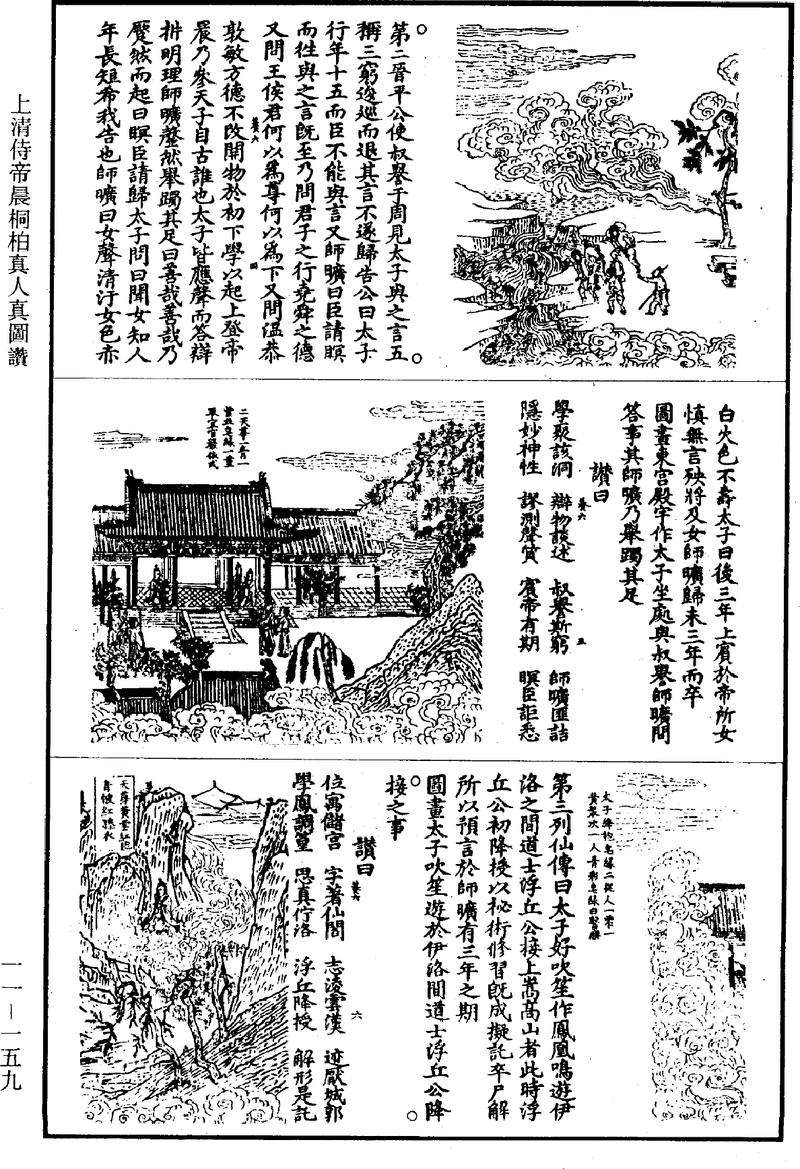 第二晉平公使叔譽于周見太子與之言五
稱三窮逡巡而退其言不遂歸告公曰太子
行年十五而臣不能與言又師曠曰臣請瞑
而徃與之言旣至乃問君子之行堯舜之德
又問王侯君何以爲尊何以爲下又問温恭
敦敏方德不改開物於初下學以起上登帝
晨乃參天子自古誰也太子皆應聲而答辯
枿明理師曠罄然舉躅其足曰善哉善哉乃
蹙然而起曰瞑臣請歸太子問曰聞女知人
年長短希我告也師曠曰女聲清汙女色亦
白火色不壽太子曰後三年上賓於帝所女
慎無言殃將及女師曠歸未三年而卒
圖畫東宫殿宇作太子坐處與叔譽師曠問
答事其師曠乃舉躅其足
讃曰
學聚該洞 辯物談述 叔譽斯窮 師曠匪詰
隱妙神性 謬測聲質 賓帝有期 瞑臣詎悉
第三列仙傳曰太子好吹笙作鳳凰鳴遊伊
洛之間道士浮丘公接上嵩髙山者此時浮
丘公初降授以秘術修習旣成擬託卒尸解
所以預言於師曠有三年之期
圖畫太子吹笙遊於伊洛間道士浮丘公降
接之事
讃曰
位寓儲宫 字著仙閣 志淩雲漢 迹厭城郭
學鳳調皇 思真佇洛 浮丘降授 解形是託
上清侍帝晨桐柏真人真圖讚
一一－一五九